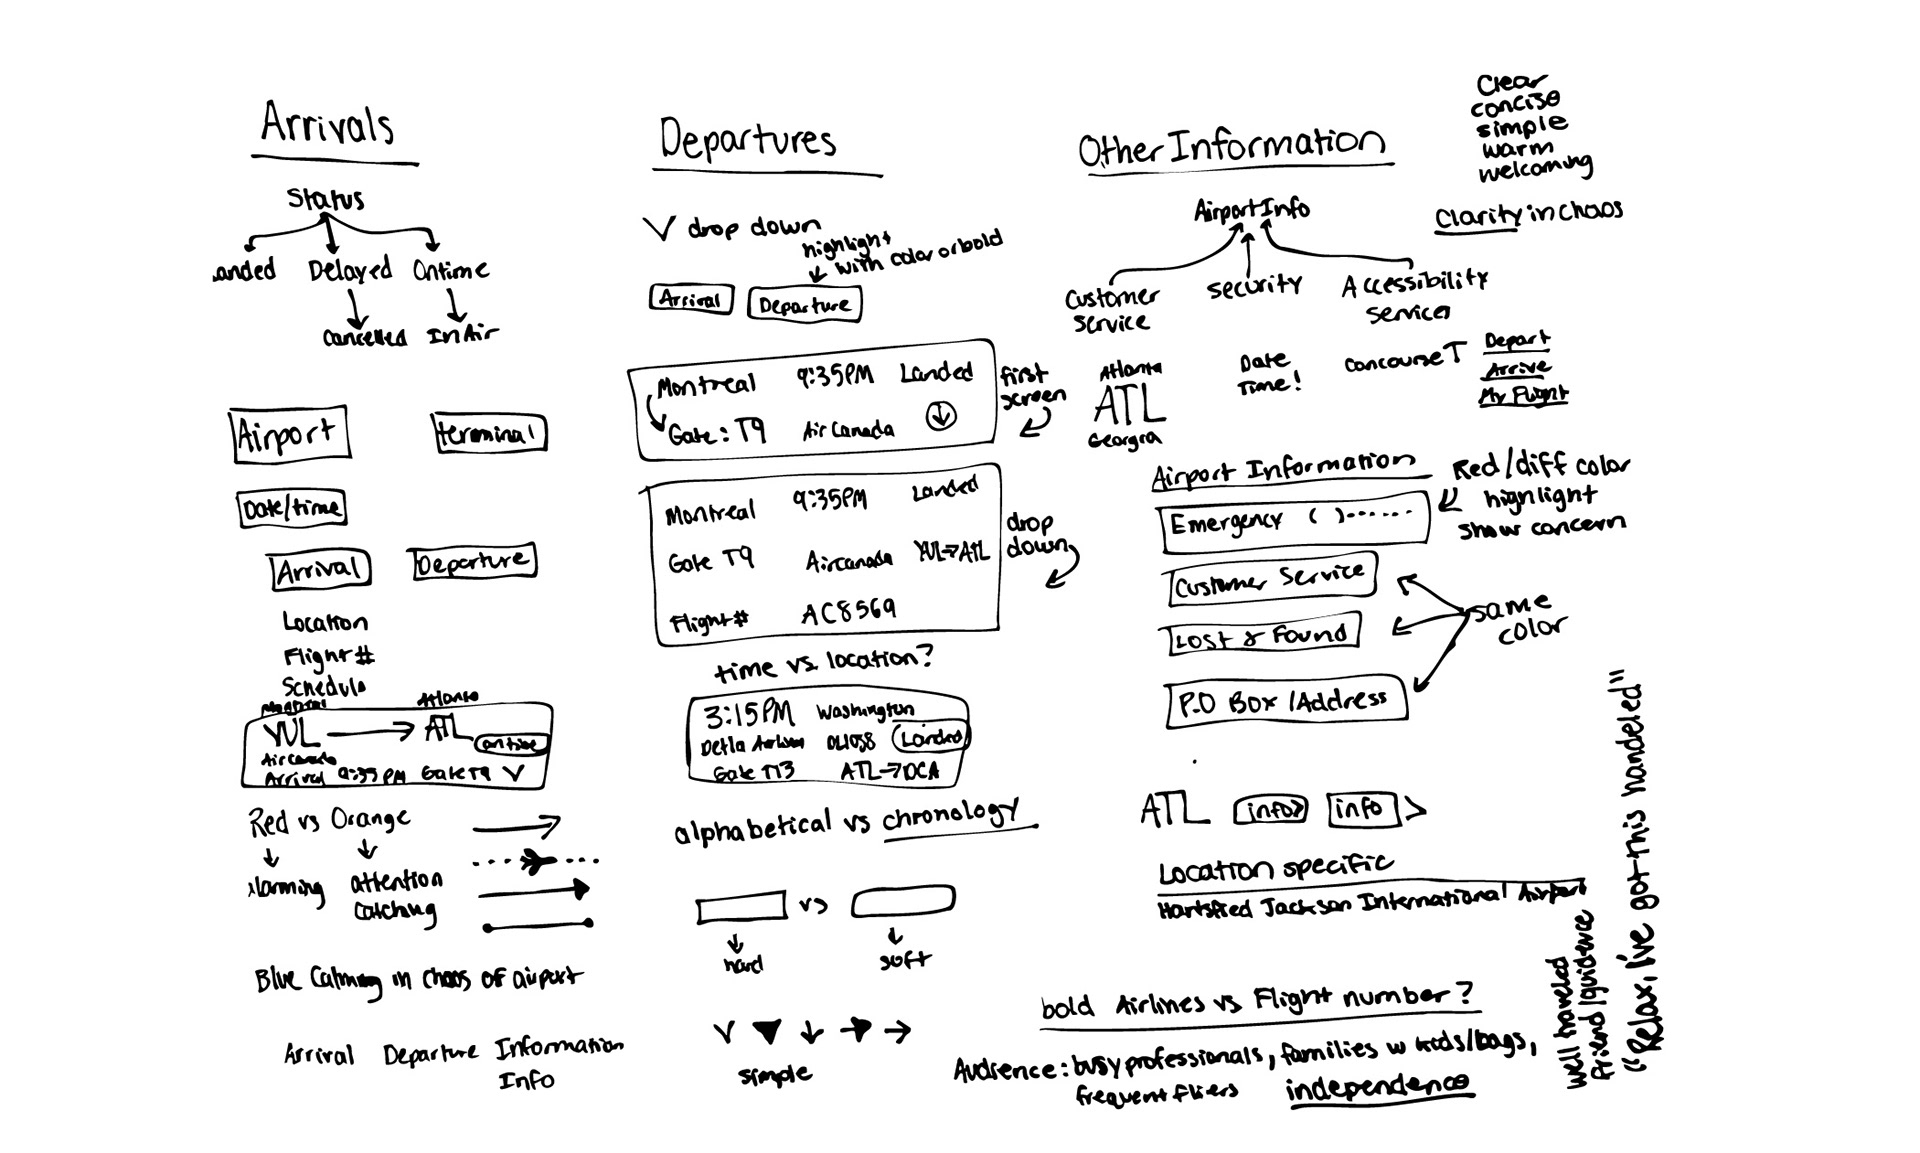 Arrivals
Status
anded Delayed Ontime
Cancelled In Air
Airport terminal
Date/time
Arrival Departure
Location
Flight #
Schedule
Montreal Atlanta
YUL → ATL
on time
Air canada
Arrival 9:35 PM Gate T9 V
Red vs Orange
alarming attention
catching
Blue Calming in chaos of airport
Arrival Departure Information
Info
Departures
V drop down
highlight
with color or bold
Arrival Departure
Montreal 9:35PM Landed
Gate: T9 Air Canada
first
screen
Montreal 9:35PM Landed
Gate T9 Aircanada YUL→ATL
Flight# AC8569
drop
down
time vs. location?
3:15PM Washington
Detla Airlines DL1058 Landed
Gate T13 ATL→DCA
alphabetical vs chronology
vs
hard soft
simple
Other Information
Airport Info
Customer
Service
Security
Accessibility
Services
Clear
concise
simple
warm
welcoming
Clarity in chaos
Atlanta
ATL
Georgia
Date
Time!
Concourse T
Depart
Arrive
My Flight
Airport Information
Emergency ( )-------
Red/diff color
highlight
show concern
Customer Service
Lost & Found
P.O Box /Address
same
color
ATL info> info >
Location specific
Hartsfied Jackson International Airport
bold Airlines vs Flight number?
Audience: busy professionals, families w kids/bags,
frequent fliers independence
well traveled
friend/guidence
"Relax, I've got this handeled"